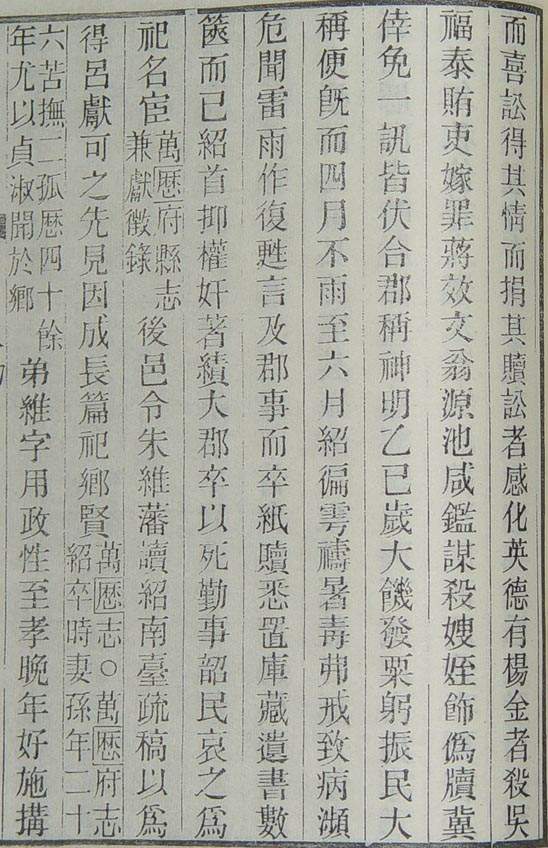 而喜訟得其情而捐其贖訟者感化英德有楊金者殺吳
福泰賄吏嫁罪蔣效文翁源池咸鑑謀殺嫂姪飾僞牘冀
倖免一訊皆伏合郡稱神明乙巳歲大饑發粟躬振民大
稱便旣而四月不雨至六月紹徧雩禱暑毒弗戒致病瀕
危聞雷雨作復甦言及郡事而卒紙贖悉置庫藏遺書數
篋而已紹首抑權奸著績大郡卒以死勤事韶民哀之爲
祀名宦萬歷府縣志
兼獻徵錄
後邑令朱維藩讀紹南臺疏稿以爲
得呂獻可之先見因成長篇祀鄉賢萬歷志○萬歷府志
紹卒時妻孫年二十
六苦撫二孤歷四十餘
年尤以貞淑聞於鄉
弟維字用政性至孝晚年好施搆